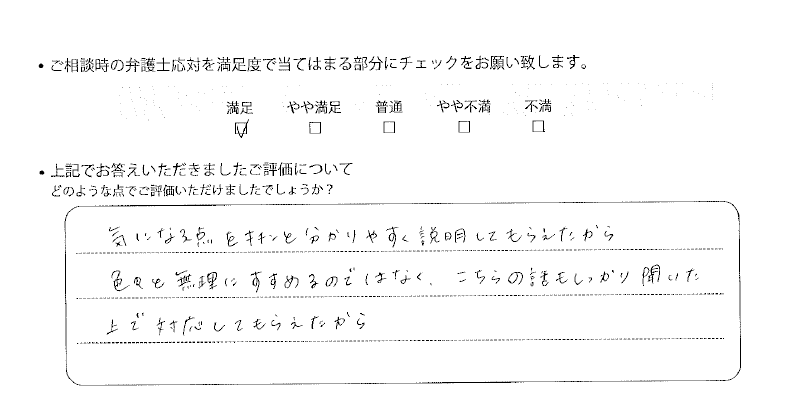 • ご相談時の弁護士応対を満足度で当てはまる部分にチェックをお願い致します。
満足 やや満足 普通 やや不満 不満
☑ □ □ □ □
• 上記でお答えいただきましたご評価について
どのような点でご評価いただけましたでしょうか？
気になる点をキチンと分かりやすく説明してもらえたから
色々と無理にすすめるのではなく、こちらの話もしっかり聞いた
上で対応してもらえたから